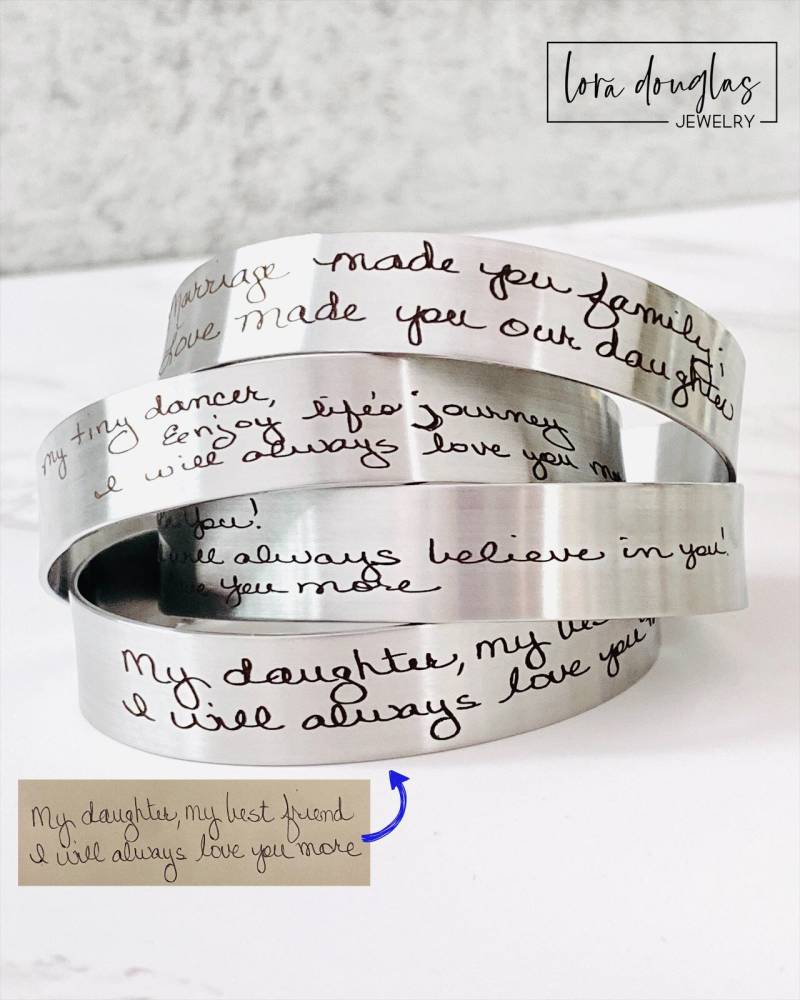 lora douglas
JEWELRY
Marriage made you family;
Love made you our daughter
my tiny dancer,
Eenjoy life's journey
I will always love you
you!
will always believe in you!
you more
My daughter, my
I will always love you
My daughter, my best friend
I will always love you more